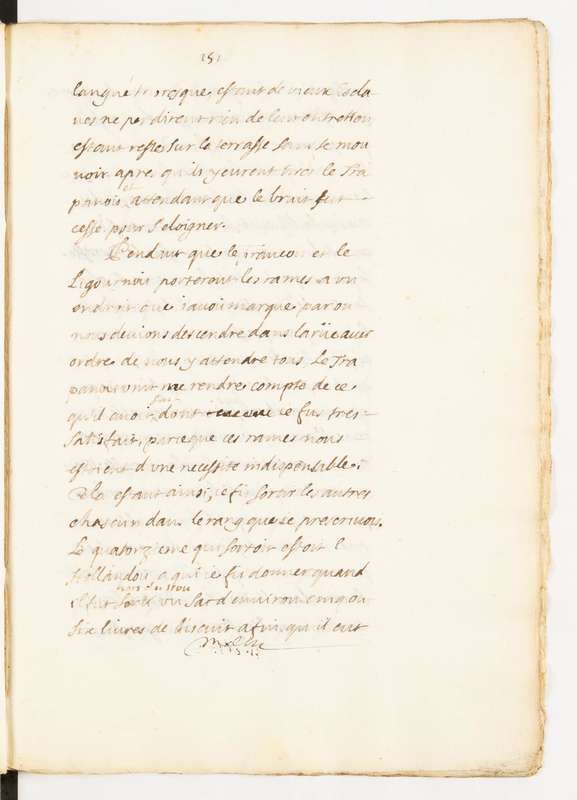 151
langue turesque, estant de vieux Escla-
ves ne perdirent rien de leur entretien
estant reste sur le terrasse sans se mou
voir apre qu'ils y eurent tirés le Tra
panois et attendant que le bruit fut
cesse pour s'eloigner.
Pendant que le francois et le
Ligournois porteront les rames a un
endroit que j'avois marque par ou
nous devions descendre dans la rüe avec
ordre de nous y attendre tous le Tra
panois vint me rendre compte de ce
qu'il avoit fait dont je fus tres-
satisfait, parceque ces rames nous
estoient d'une necessite indispensable,
Cela estant ainsi, je fis sortir les autres
chascun dans le rang que se prescrivois.
Le quatorzieme qui sortoit estoit l
hollandois a qui je fis donner quand
il fut sorti un sac d'environ cinq ou
six livres de biscuit afin qu'il eut